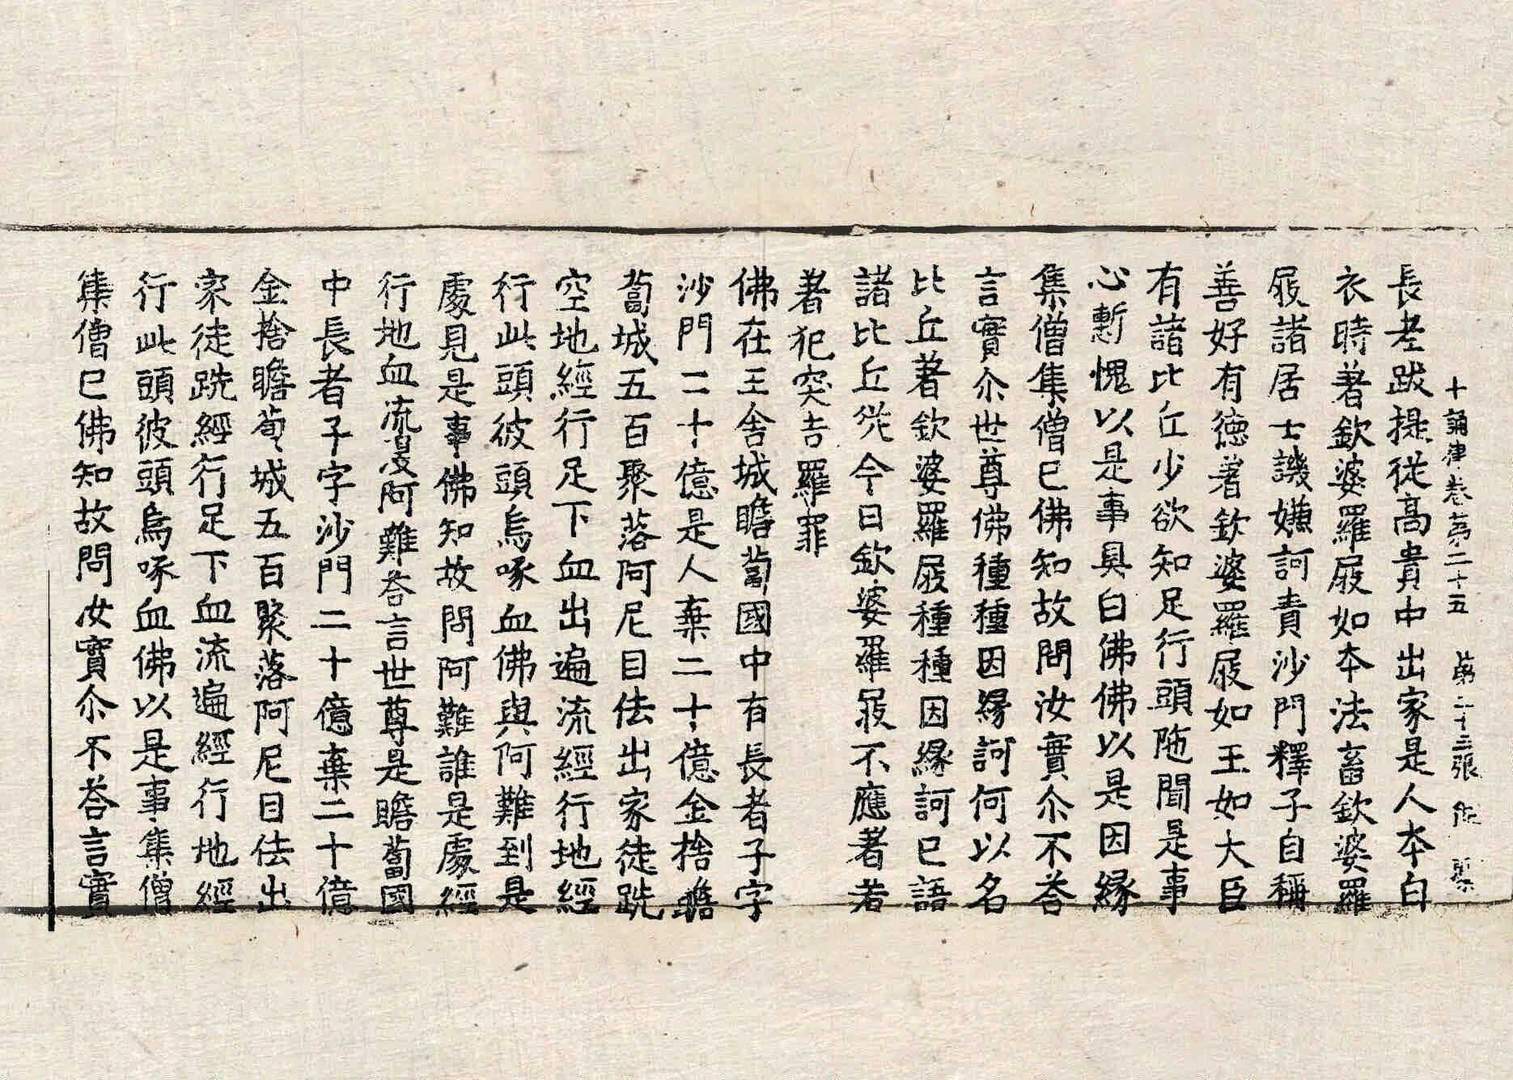 十誦律卷第二十五 第二十三張
長老跋提從高貴中出家是人本白
衣時著欽婆羅屐如本法畜欽婆羅
屐諸居士譏嫌訶責沙門釋子自稱
善好有德著欽婆羅屐如王如大臣
有諸比丘少欲知足行頭陁聞是事
心慙愧以是事具白佛佛以是因緣
集僧集僧已佛知故問汝實尒不荅
言實尒世尊佛種種因緣訶何以名
比丘著欽婆羅屐種種因緣訶已語
諸比丘從今日欽婆羅屐不應著若
著犯突吉羅罪
佛在王舍城瞻蔔國中有長者子字
沙門二十億是人棄二十億金捨瞻
蔔城五百聚落阿尼目佉出家徒跣
空地經行足下血出遍流經行地經
行此頭彼頭烏啄血佛與阿難到是
處見是事佛知故問阿難誰是處經
行地血流漫阿難荅言世尊是瞻蔔國
中長者子字沙門二十億棄二十億
金捨瞻蔔城五百聚落阿尼目佉出
家徒跣經行足下血流遍經行地經
行此頭彼頭烏啄血佛以是事集僧
集僧已佛知故問汝實尒不荅言實